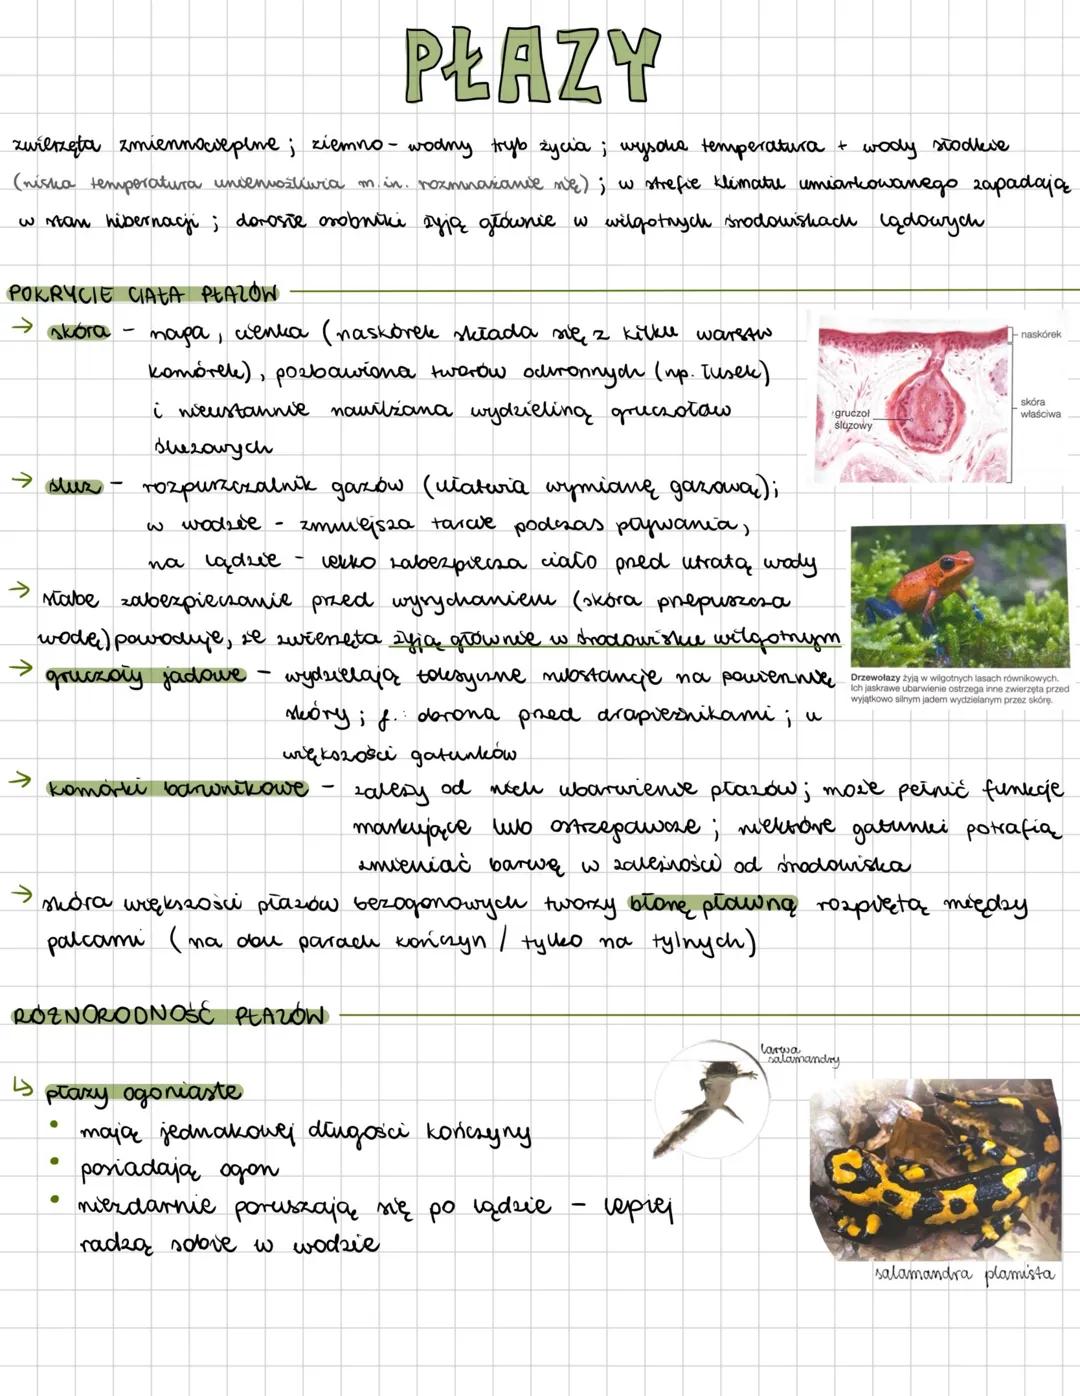 PŁAZY
zwierzęta zmiennocieplne ; ziemno - wodny tryb życia ; wysoka temperatura + wody słodkie
(niska temperatura uniemożliwia m.in. rozmnażanie się) ; w strefie klimatu umiarkowanego zapadają
w stan hibernacji ; dorosłe osobniki żyją głównie w wilgotnych środowiskach lądowych
POKRYCIE CIAŁA PŁAZÓW
→ skóra - naga, cienka (naskórek składa się z kilku warstw
komórek), pozbawiona tworów ochronnych (np. łusek)
i nieustannie nawilżana wydzieliną gruczołów
śluzowych
naskórek
skóra
właściwa
gruczoł
śluzowy
→ śluz - rozpuszczalnik gazów (ułatwia wymianę gazową);
w wodzie - zmniejsza tarcie podczas pływania,
na lądzie - lekko zabezpiecza ciało przed utratą wody
→ słabe zabezpieczanie przed wysychaniem (skóra przepuszcza
wodę) powoduje, że zwierzęta żyją głównie w środowisku wilgotnym
Drzewołazy żyją w wilgotnych lasach równikowych.
Ich jaskrawe ubarwienie ostrzega inne zwierzęta przed
wyjątkowo silnym jadem wydzielanym przez skórę.
→ gruczoły jadowe - wydzielają toksyczne substancje na powierznię
skóry ; f.: obrona przed drapieżnikami ; u
większości gatunków
→ komórki barwnikowe - zależy od nich ubarwienie płazów ; może pełnić funkcje
maskujące lub ostrzegawcze ; niektóre gatunki potrafią
zmieniać barwę w zależności od środowiska
→ skóra większości płazów bezogonowych tworzy błonę pławną rozpiętą między
palcami (na obu parach kończyn / tylko na tylnych)
RÓŻNORODNOŚĆ PŁAZÓW
larwa
salamandry
↳ płazy ogoniaste
• mają jednakowej długości kończyny
• posiadają ogon
• niezdarnie poruszają się po lądzie - lepiej
radzą sobie w wodzie
salamandra plamista